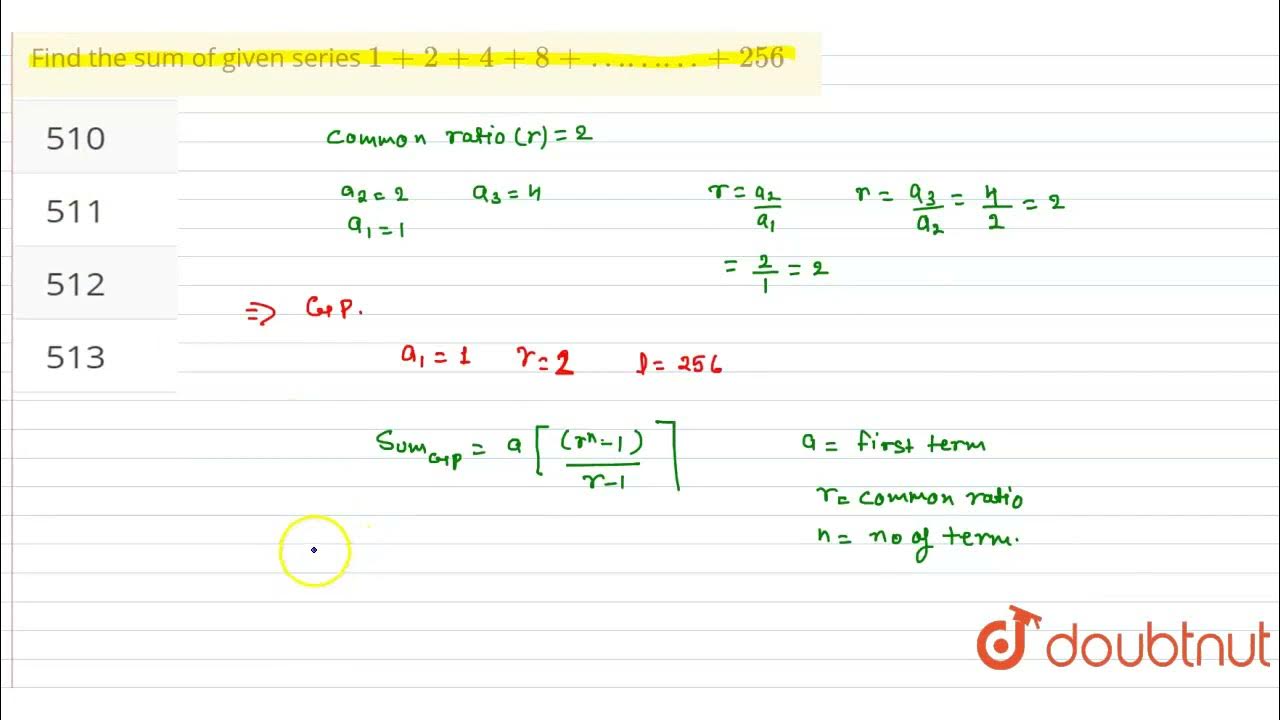 Find the sum of given series 1 + 2 + 4 + 8 + ……… + 256
510
511
512
513
common ratio (r) = 2
a₂ = 2 a₃ = 4 r = a₂/a₁ r = a₃/a₂ = 4/2 = 2
a₁ = 1
= 2/1 = 2
⇒ G.P.
a₁ = 1 r = 2 l = 256
Sum GP = a [ (rⁿ – 1) / r – 1 ] a = first term
r = common ratio
n = no of term.
doubtnut